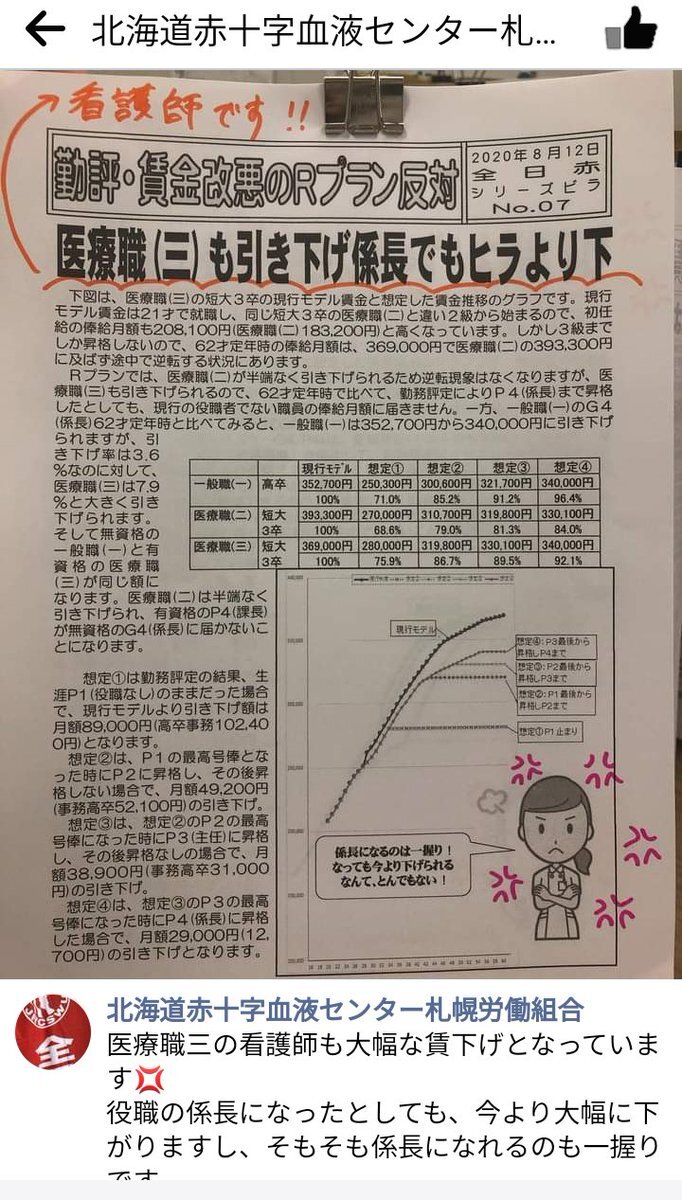 北海道赤十字血液センター札…
看護師です!!
勤評・賃金改悪のRプラン反対
2020年8月12日
全日赤
シリーズビラ
No.07
医療職(三)も引き下げ係長でもヒラより下
下図は、医療職(三)の短大3卒の現行モデル賃金と想定した賃金推移のグラフです。現行
モデル賃金は21才で就職し、同じ短大3卒の医療職(二)と違い2級から始まるので、初任
給の俸給月額も208,100円(医療職(二)183,200円)と高くなっています。しかし3級まで
しか昇格しないので、62才定年時の俸給月額は、369,000円で医療職(二)の393,300円
に及ばず途中で逆転する状況にあります。
Rプランでは、医療職(二)が半端なく引き下げられるため逆転現象はなくなりますが、医
療職(三)も引き下げられるので、62才定年時で比べて、勤務評定によりP4(係長)まで昇格
したとしても、現行の役職者でない職員の俸給月額に届きません。一方、一般職(一)のG4
(係長)62才定年時と比べてみると、一般職(一)は352,700円から340,000円に引き下げ
られますが、引
き下げ率は3.6
%なのに対して、
医療職(三)は7.9
%と大きく引き
下げられます。
そして無資格の
一般職(一)と有
資格の医療職
(三)が同じ額に
なります。医療職(二)は半端なく
引き下げられ、有資格のP4(課長)
が無資格のG4(係長)に届かないこ
とになります。
現行モデル 想定① 想定② 想定③ 想定④
一般職(一) 高卒 352,700円 250,300円 300,600円 321,700円 340,000円
100% 71.0% 85.2% 91.2% 96.4%
医療職(二) 短大3卒 393,300円 270,000円 310,700円 319,800円 330,100円
100% 68.6% 79.0% 81.3% 84.0%
医療職(三) 短大3卒 369,000円 280,000円 319,800円 330,100円 340,000円
100% 75.9% 86.7% 89.5% 92.1%
想定①は勤務評定の結果、生
涯P1(役職なし)のままだった場合
で、現行モデルより引き下げ額は
月額89,000円(高卒事務102,40
0円)となります。
想定②は、P1の最高号俸とな
った時にP2に昇格し、その後昇
格しない場合で、月額49,200円
(事務高卒52,100円)の引き下げ。
想定③は、想定②のP2の最高
号俸になった時にP3(主任)に昇格
し、その後昇格なしの場合で、月
額38,900円(事務高卒31,000
円)の引き下げ。
想定④は、想定③のP3の最高
号俸になった時にP4(係長)に昇格
した場合で、月額29,000円(12,
700円)の引き下げとなります。
現行モデル
想定④:P3最後から
昇格しP4まで
想定③:P2最後から
昇格しP3まで
想定②:P1最後から
昇格しP2まで
想定①P1止まり
係長になるのは一握り!
なっても今より下げられる
なんて、とんでもない!
全
北海道赤十字血液センター札幌労働組合
医療職三の看護師も大幅な賃下げとなっていま
す💢
役職の係長になったとしても、今より大幅に下
がりますし、そもそも係長になれるのも一握り
です